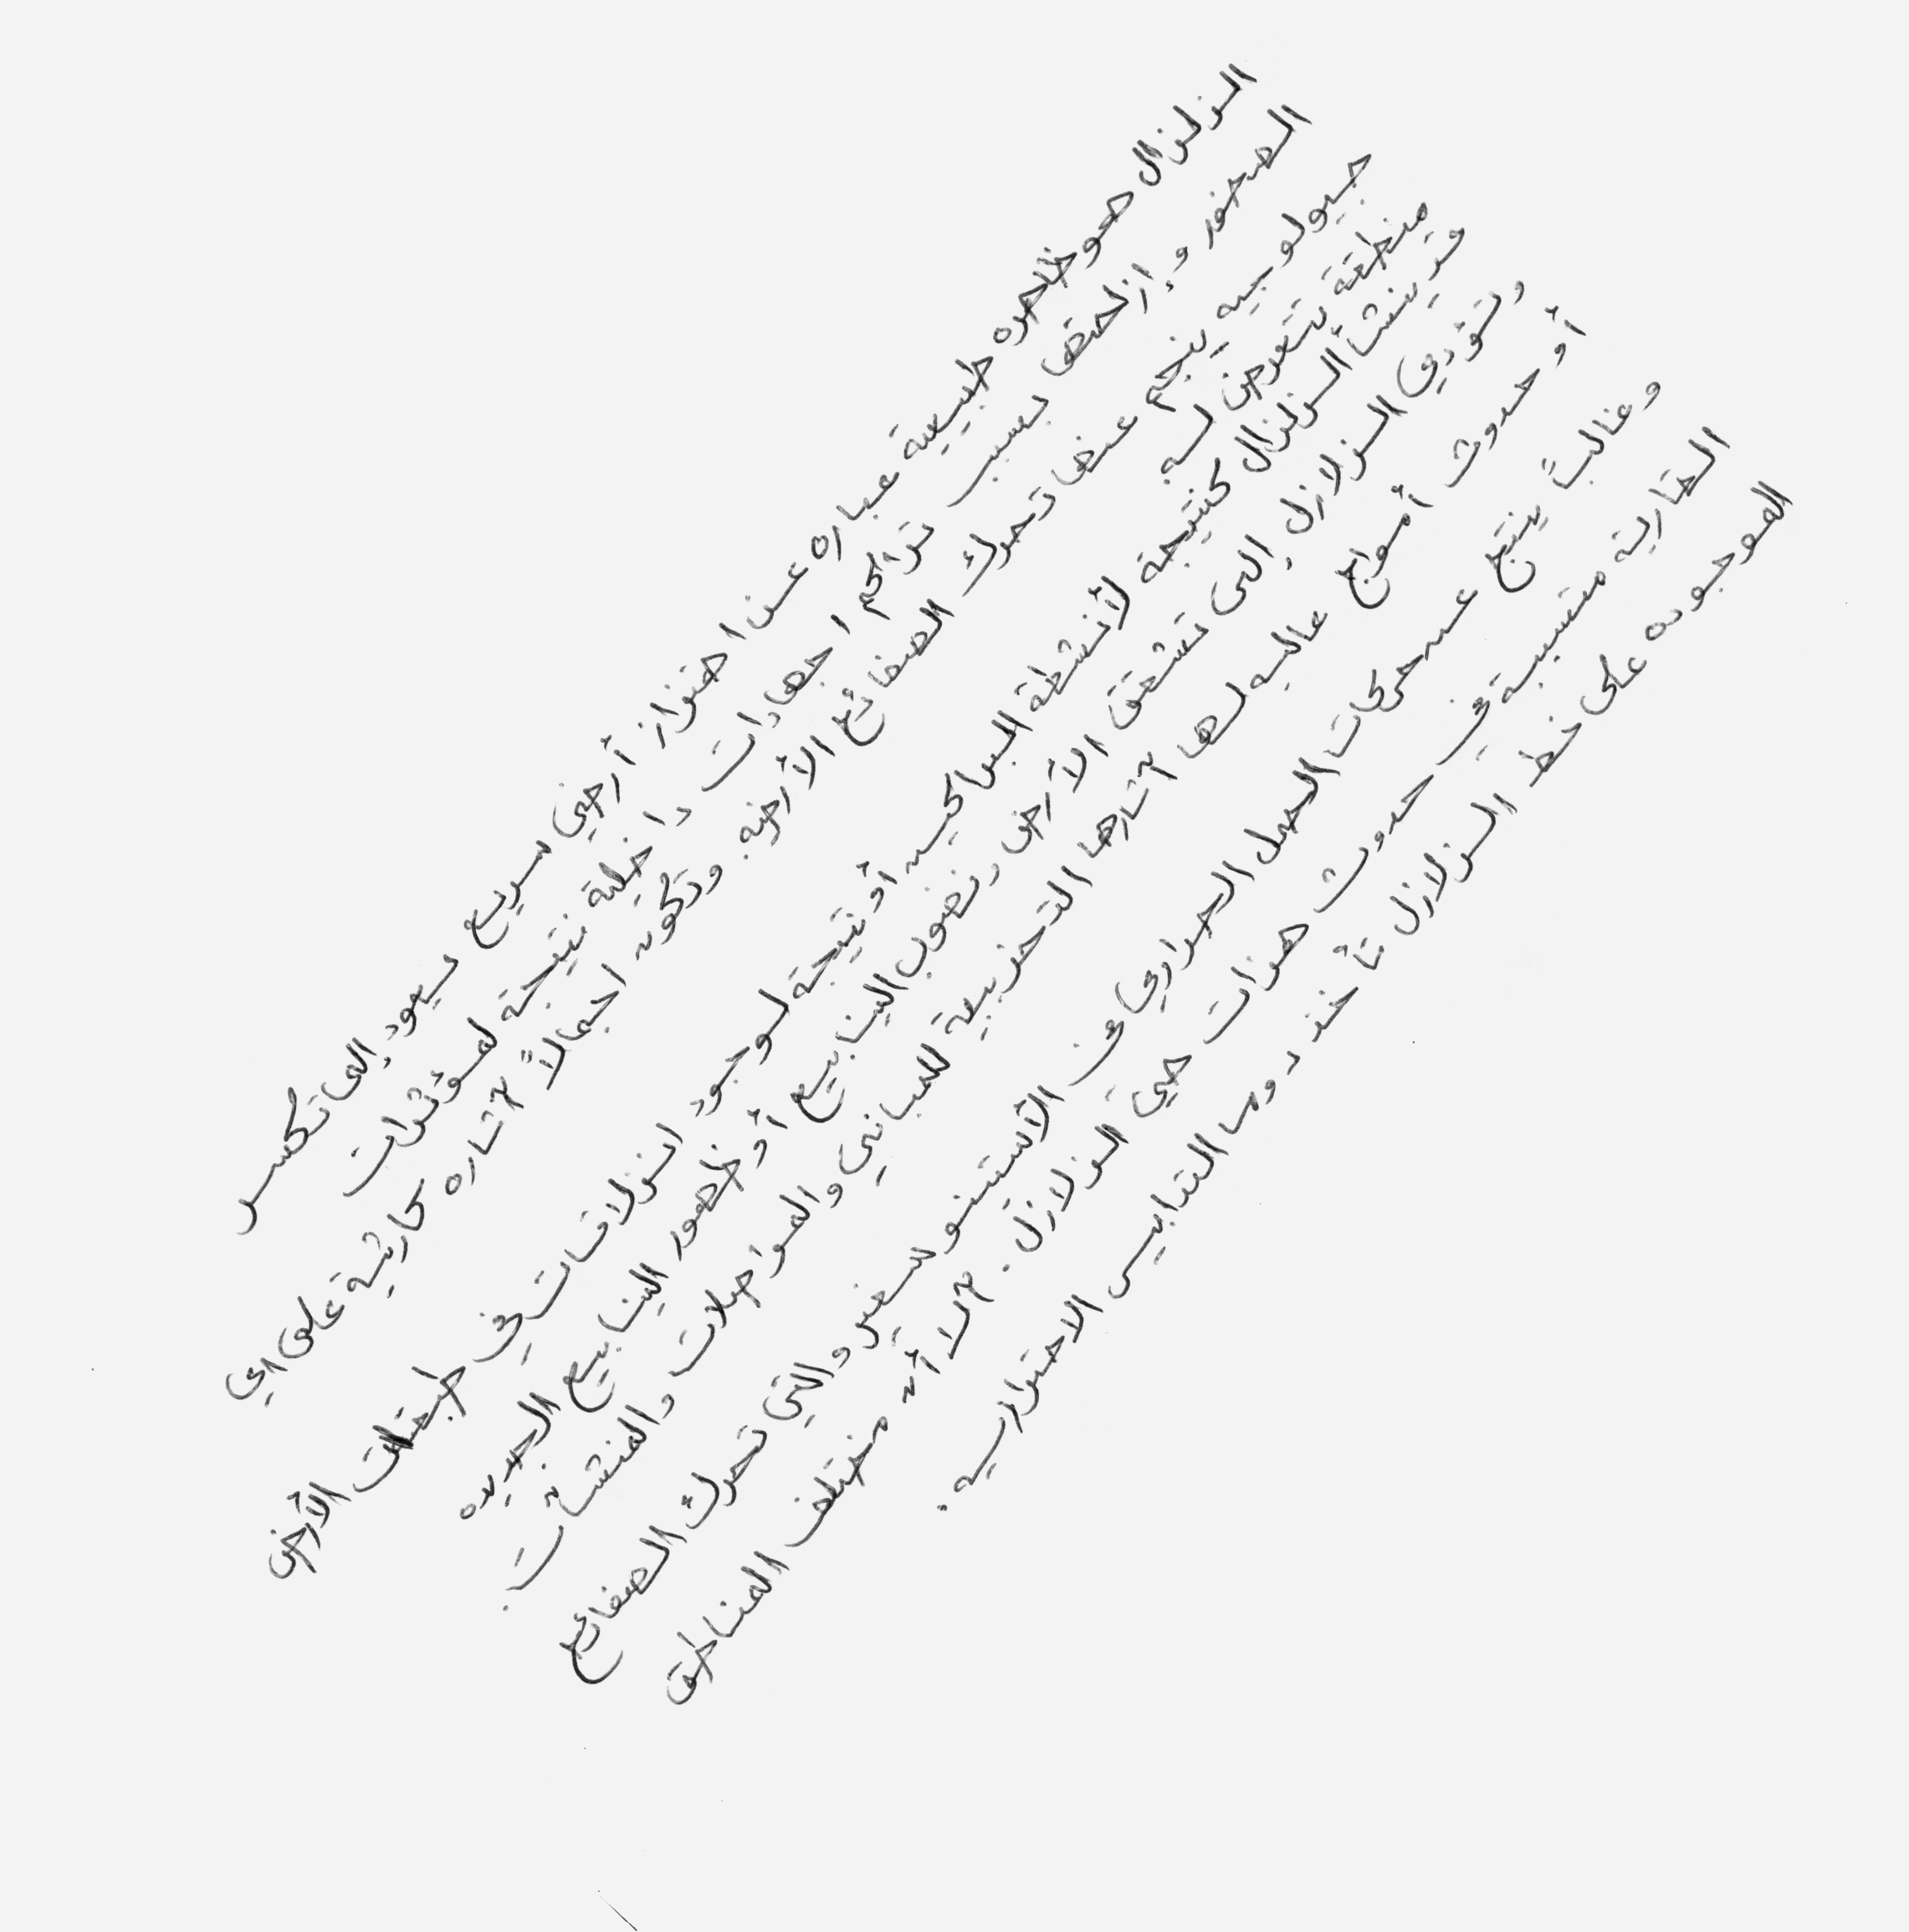 الزلزال هو ظاهرة طبيعية عبارة عن اهتزاز أرضي سريع يعود إلى تكسر
الصخور وإزاحتها بسبب تراكم اجهادات داخلية نتيجة لمؤثرات
جيولوجية ينجم عنها تحرك الصفائح الأرضية. وتكون اجمالاً آثاره كارثية على أي
منطقة تتعرض له.
قد ينشأ الزلزال كنتيجة لأنشطة البراكين أو نتيجة لوجود انزلاقات في طبقات الأرض
وتؤدي الزلازل إلى تشقق الأرض ونضوب الينابيع أو ظهور الينابيع الجديدة
أو حدوث أمواج عالية لها آثارها التخريبية للمباني والمواصلات والمنشآت.
وغالباً ينتج عن حركات الحمل الحراري في الأستنوسفير والتي تحرك الصفائح
القارية متسببة في حدوث هزات هي الزلازل. كما أنه مختلف المناطق
الموجودة على خط الزلازل تأخذ دوما التدابير الاحترازية.